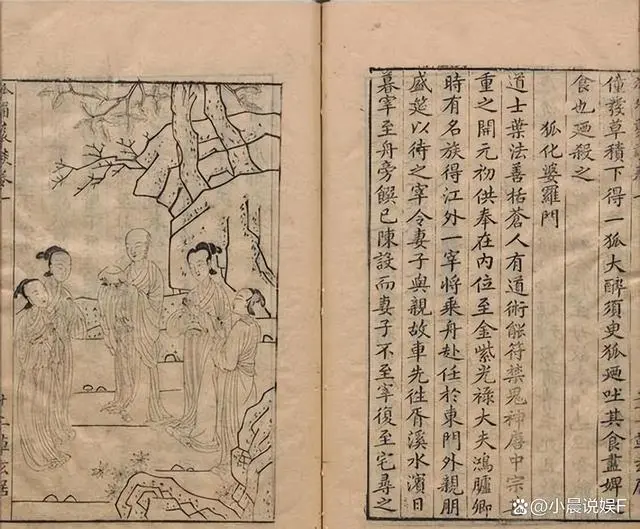 僮發草積下得一狐大醉須臾狐廼吐其食盡婢
食也廼殺之
狐化婆羅門
道士葉法善括蒼人有道術能符禁鬼神唐中宗
重之開元初供奉在内位至金紫光禄大夫鴻臚卿
時有名族得江外一宰將乘舟赴任於東門外親朋
盛筵以待之宰令妻子與親故車先往胥溪水濱日
暮宰至舟旁饌已陳設而妻子不至宰復至宅尋之
@小晨说娱F